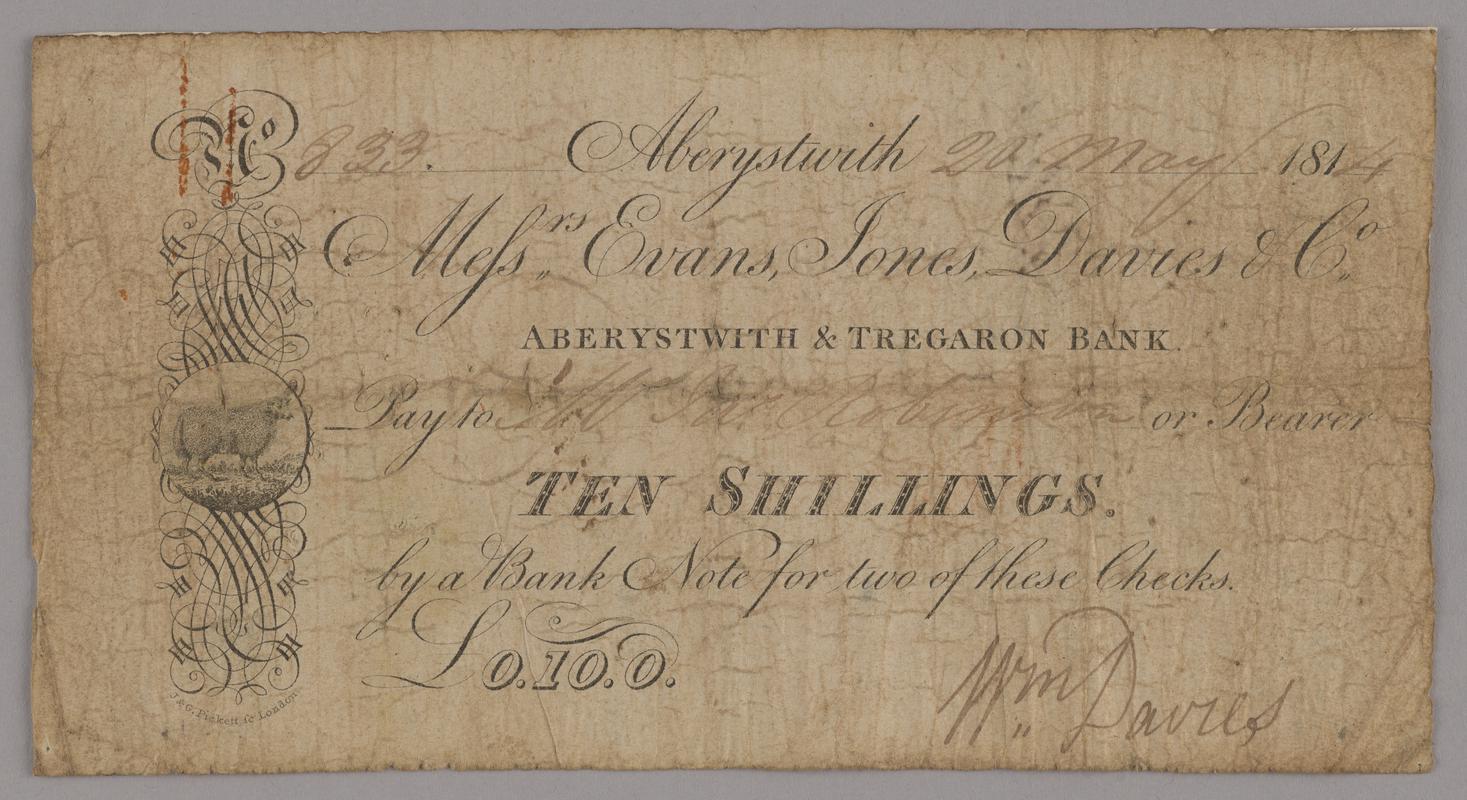 No 833. Aberystwith 20 May 1814
Messrs Evans, Jones, Davies & Co.
ABERYSTWITH & TREGARON BANK.
Pay to or Bearer
TEN SHILLINGS.
by a Bank Note for two of these Checks.
£0.10.0.
Wm Davies
J. & G. Pickett sc London